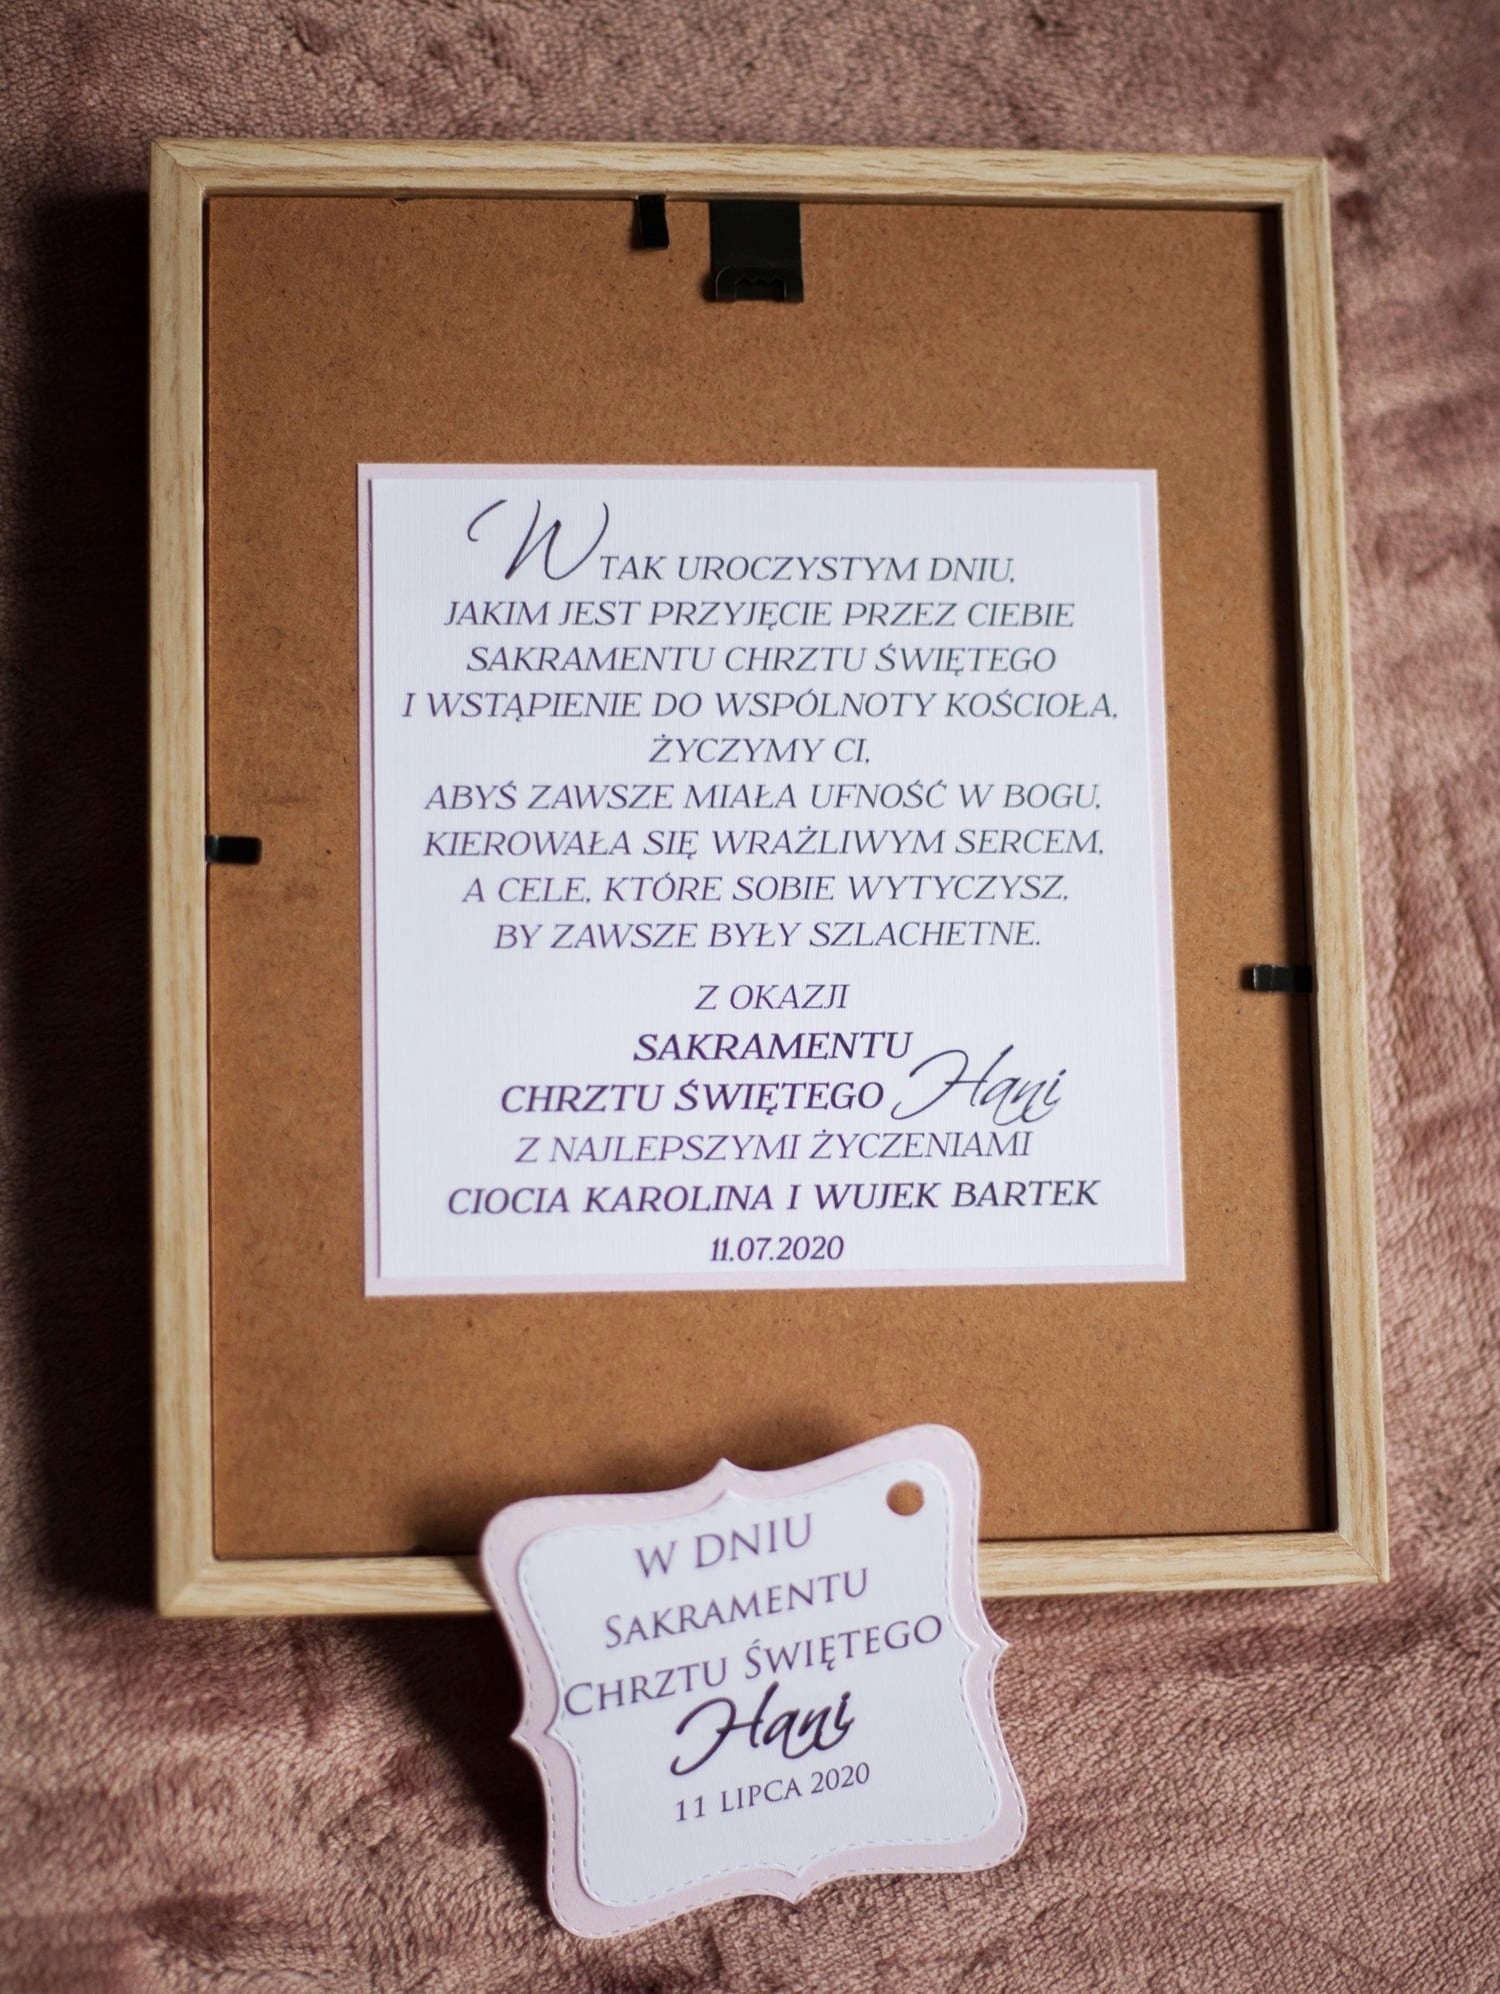 W TAK UROCZYSTYM DNIU,
JAKIM JEST PRZYJĘCIE PRZEZ CIEBIE
SAKRAMENTU CHRZTU ŚWIĘTEGO
I WSTĄPIENIE DO WSPÓLNOTY KOŚCIOŁA,
ŻYCZYMY CI,
ABYŚ ZAWSZE MIAŁA UFNOŚĆ W BOGU,
KIEROWAŁA SIĘ WRAŻLIWYM SERCEM,
A CELE, KTÓRE SOBIE WYTYCZYSZ,
BY ZAWSZE BYŁY SZLACHETNE.
Z OKAZJI
SAKRAMENTU
CHRZTU ŚWIĘTEGO Hani
Z NAJLEPSZYMI ŻYCZENIAMI
CIOCIA KAROLINA I WUJEK BARTEK
11.07.2020
W DNIU
SAKRAMENTU
CHRZTU ŚWIĘTEGO
Hani
11 LIPCA 2020